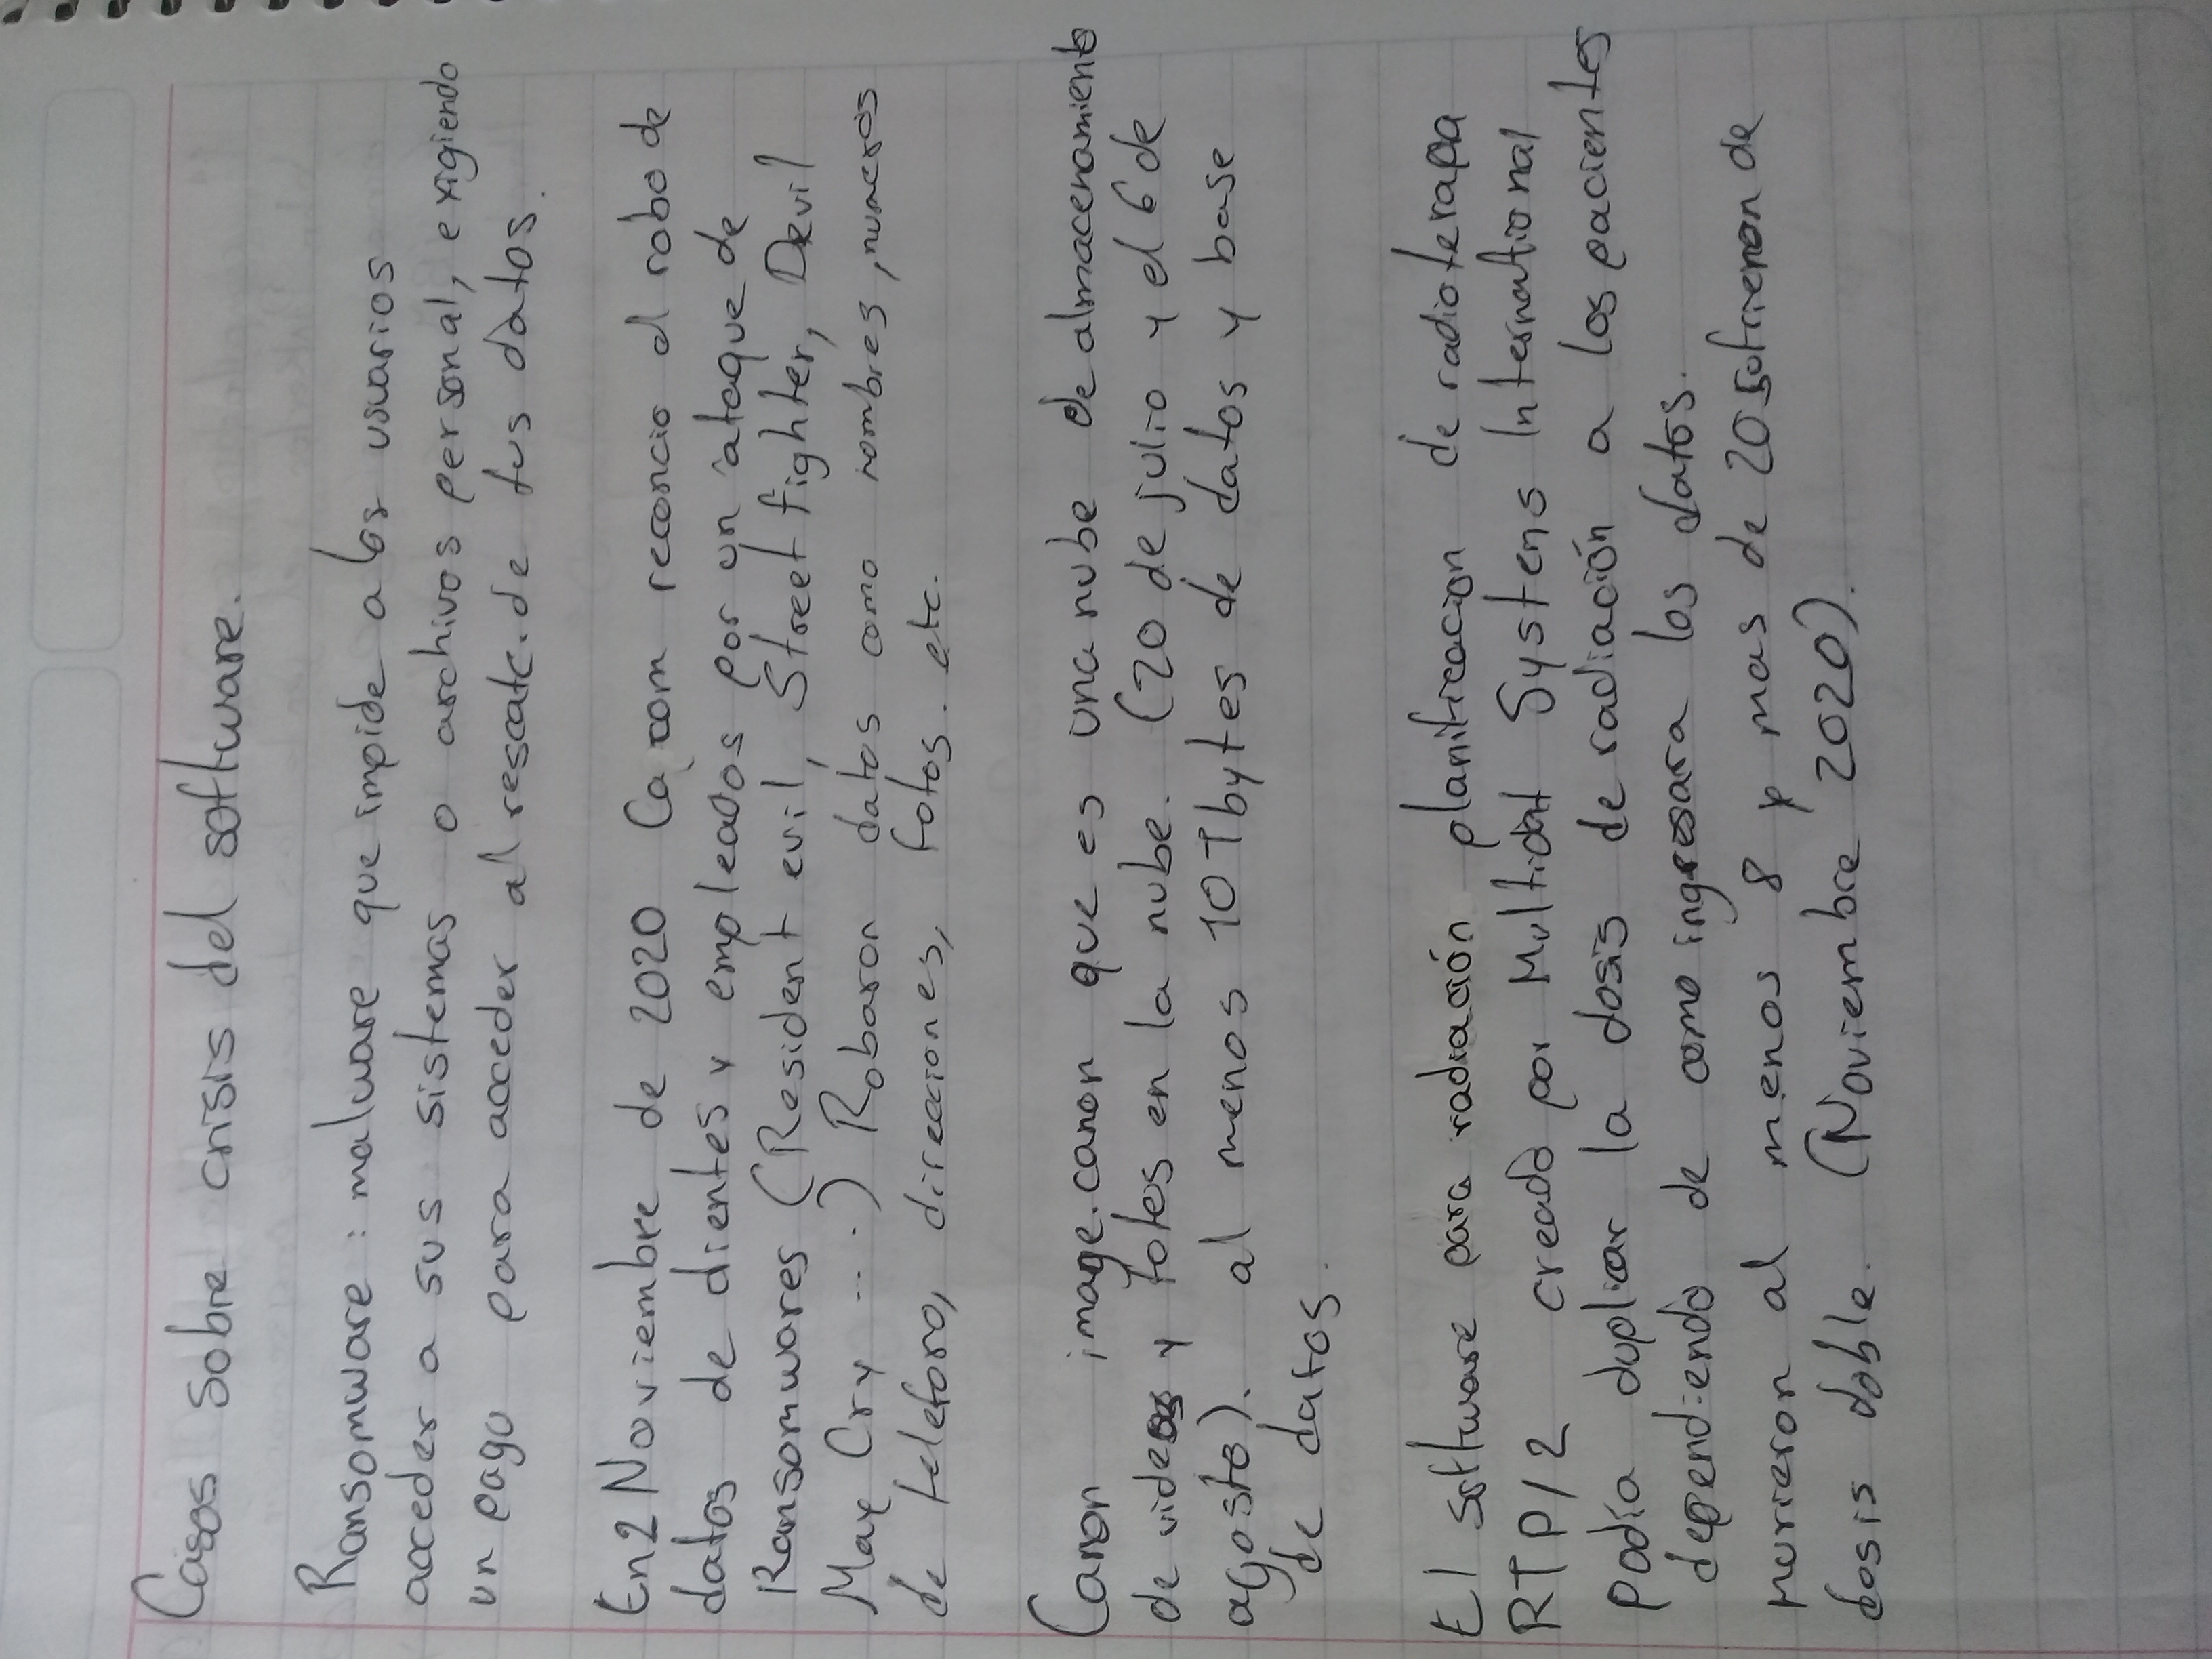 Casos sobre crisis del software.
Ransomware : malware que impide a los usuarios
acceder a sus sistemas o archivos personal, exigiendo
un pago para acceder al rescate. de tus datos.
En 2 Noviembre de 2020 Cacom reconcio el robo de
datos de clientes y empleados por un ataque de
Ransomwares (Resident evil, Street fighter, Devil
May Cry ....) Robaron datos como nombres, numeros
de telefono, direcciones, fotos. etc.
Canon image.canon que es una nube de almacenamiento
de videos y fotos en la nube. (20 de julio y el 6 de
agosto). al menos 10 Tbytes de datos y base
de datos.
El software para radiación planificacion de radioterapa
RTP/2 creado por Multidat Systens International
podía duplicar la dosis de radiación a los pacientes
dependiendo de como ingresara los datos.
murieron al menos 8 y mas de 20 sufrieron de
dosis doble. (Noviembre 2020).